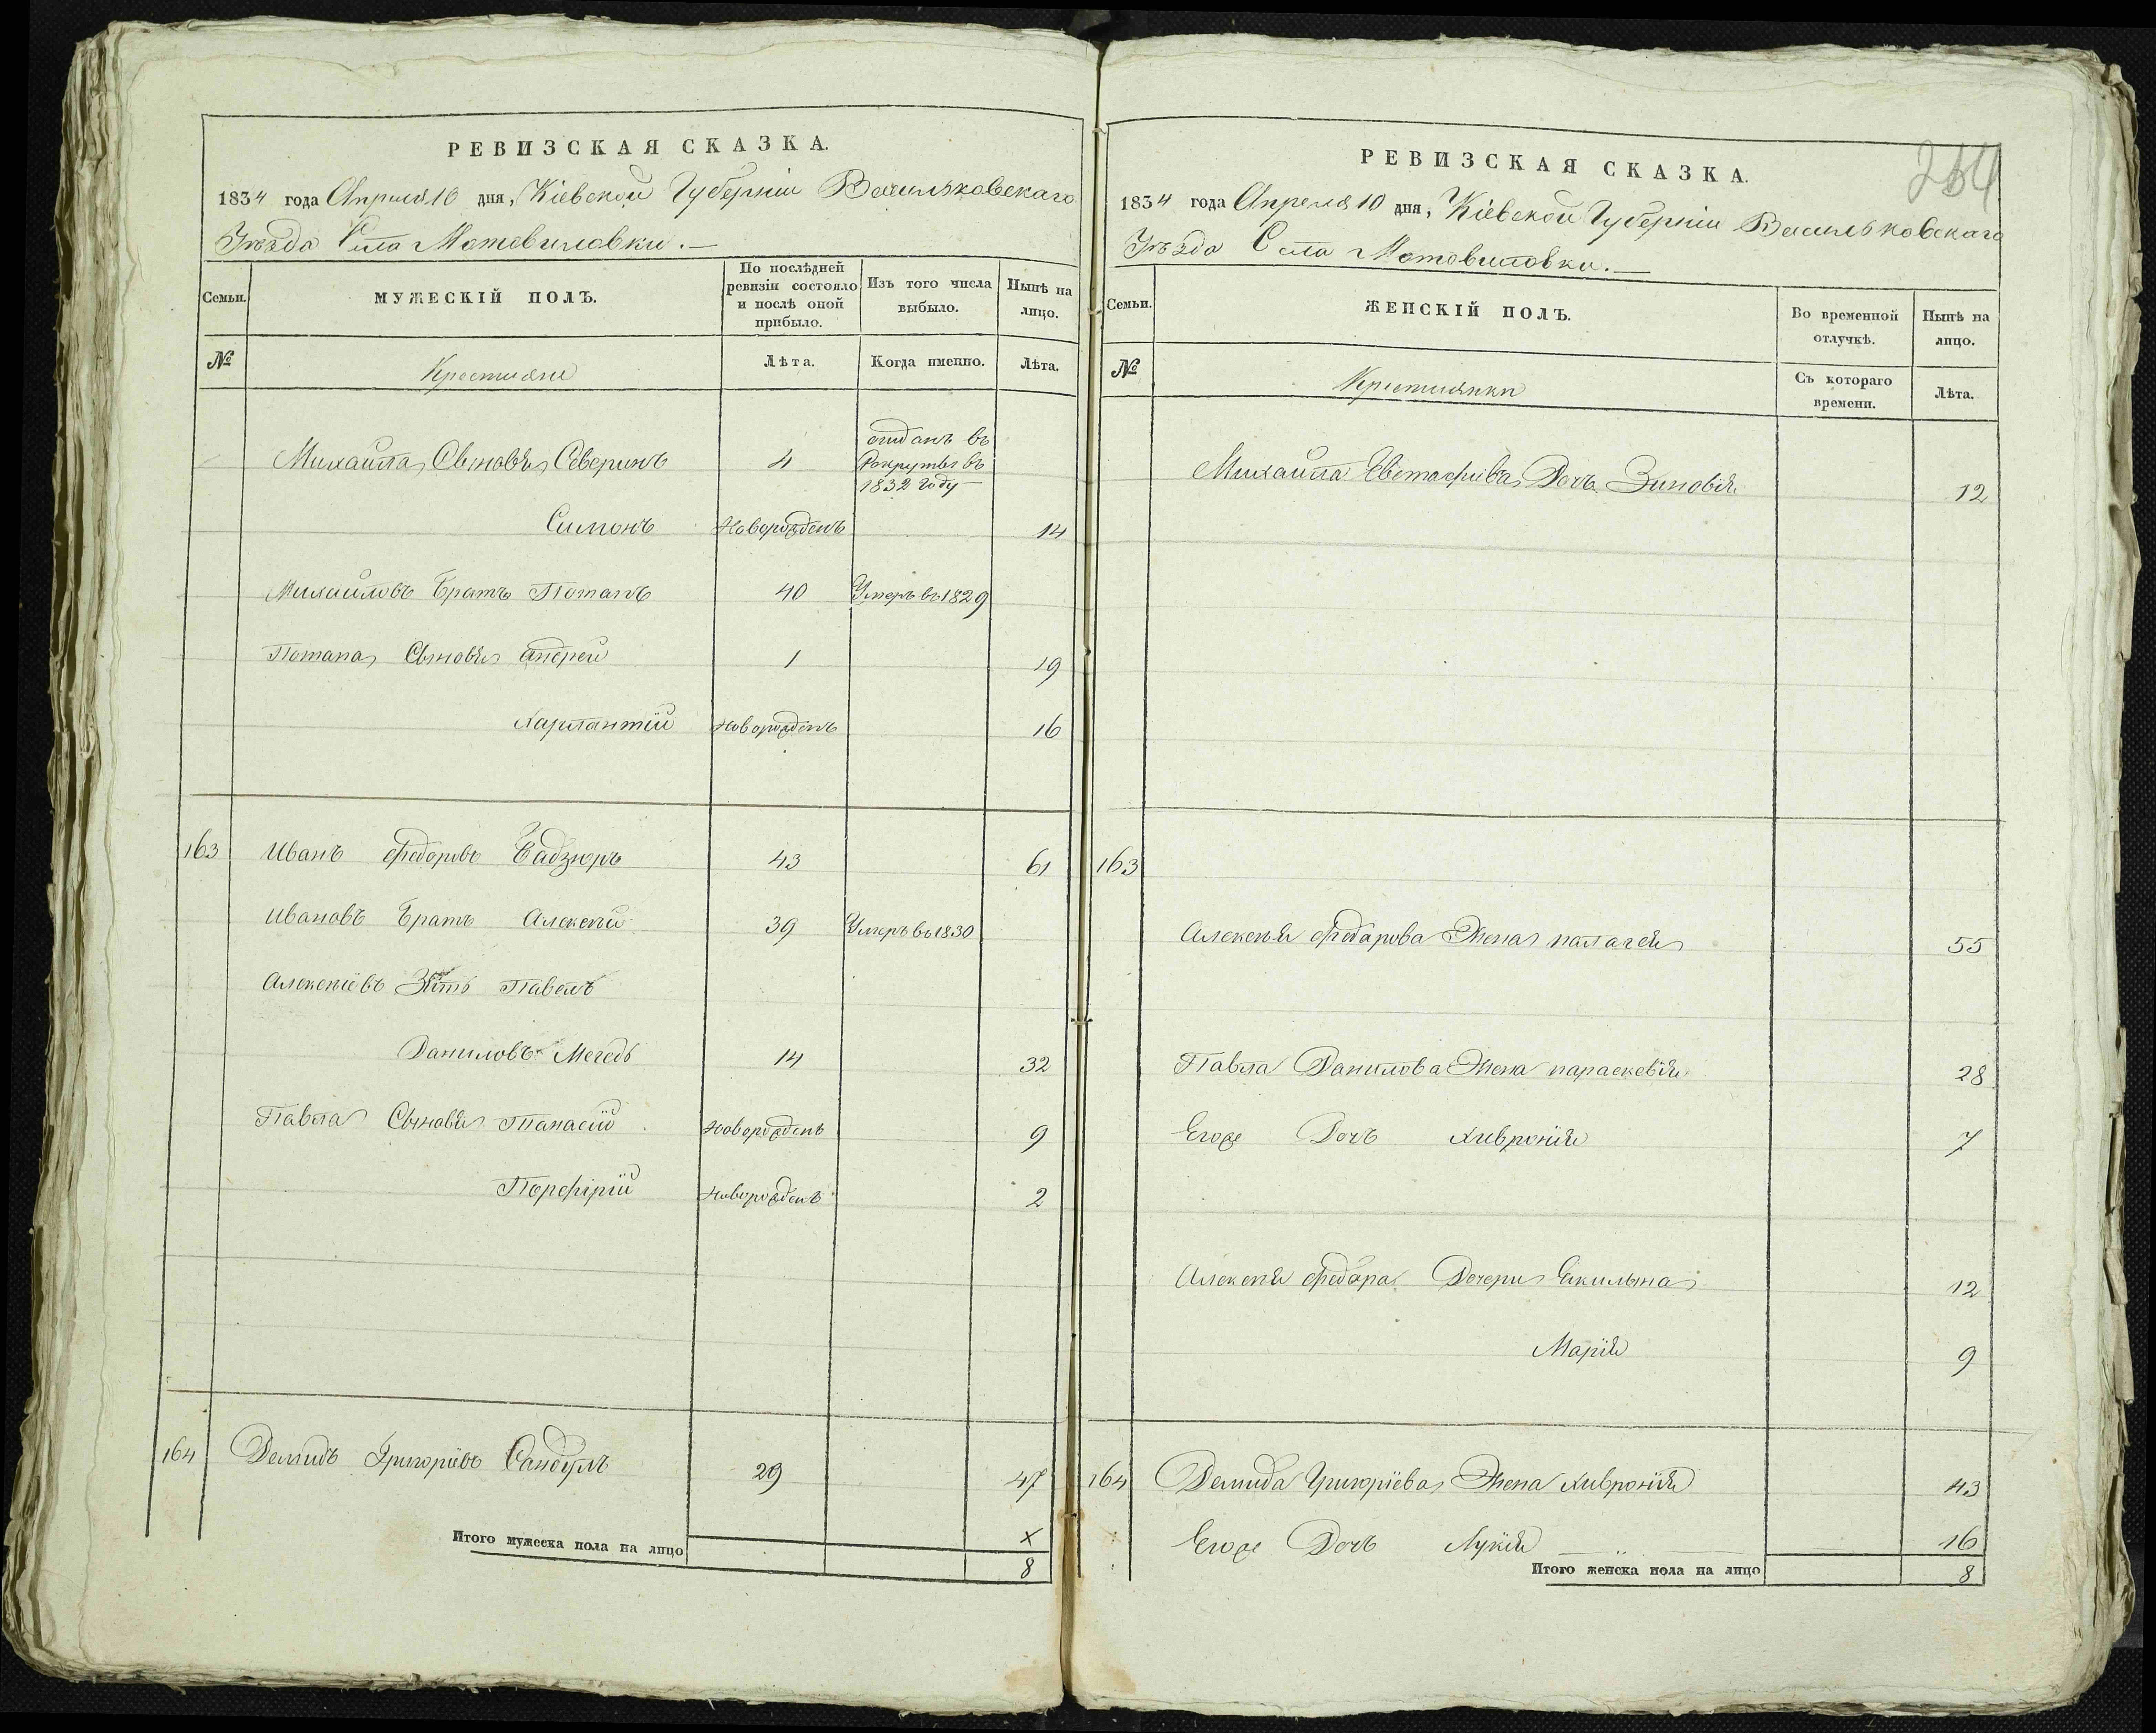 РЕВИЗСКАЯ СКАЗКА.
1834 года Апреля 10 дня, Кіевской Губерніи Васильковскаго
Уѣзда Села Мотовиловки.—
Семьи.
МУЖЕСКІЙ ПОЛЪ.
По послѣдней ревизіи состояло и послѣ оной прибыло.
Изъ того числа выбыло.
Нынѣ на лицо.
№
Крестьяне
Лѣта.
Когда именно.
Лѣта.
Михаила Сыновья Северинъ 4 отданъ въ Рекруты въ 1832 году
Симонъ Новорожденъ 14
Михаиловъ Братъ Потапъ 40 Умеръ въ 1829
Потапа Сыновья Андрей 1 19
Харлантій Новорожденъ 16
163 Иванъ Федоровъ Бадзюръ 43 61
Ивановъ Братъ Алексѣй 39 Умеръ въ 1830
Алексѣевъ Зять Павелъ
Даниловъ Мегедь 14 32
Павла Сыновья Танасій Новорожденъ 9
Порфірій Новорожденъ 2
164 Демидъ Григоріевъ Сандулъ 29 47
Итого мужеска пола на лицо
х
8
254
РЕВИЗСКАЯ СКАЗКА.
1834 года Апреля 10 дня, Кіевской Губерніи Васильковскаго
Уѣзда Села Мотовиловки.—
Семьи.
ЖЕНСКІЙ ПОЛЪ.
Во временной отлучкѣ.
Нынѣ на лицо.
№
Крестьянки
Съ котораго времени.
Лѣта.
Михаила Евстафіева Дочь Зиновія 12
163
Алексѣя Федорова Жена палагея 55
Павла Данилова Жена параскевія 28
Егоже Дочь Хивронія 7
Алексѣя Федора Дочери Екилына 12
Марія 9
164 Демида Григоріева Жена Хивронія 43
Егоже Дочь Лукія 16
Итого женска пола на лицо 8